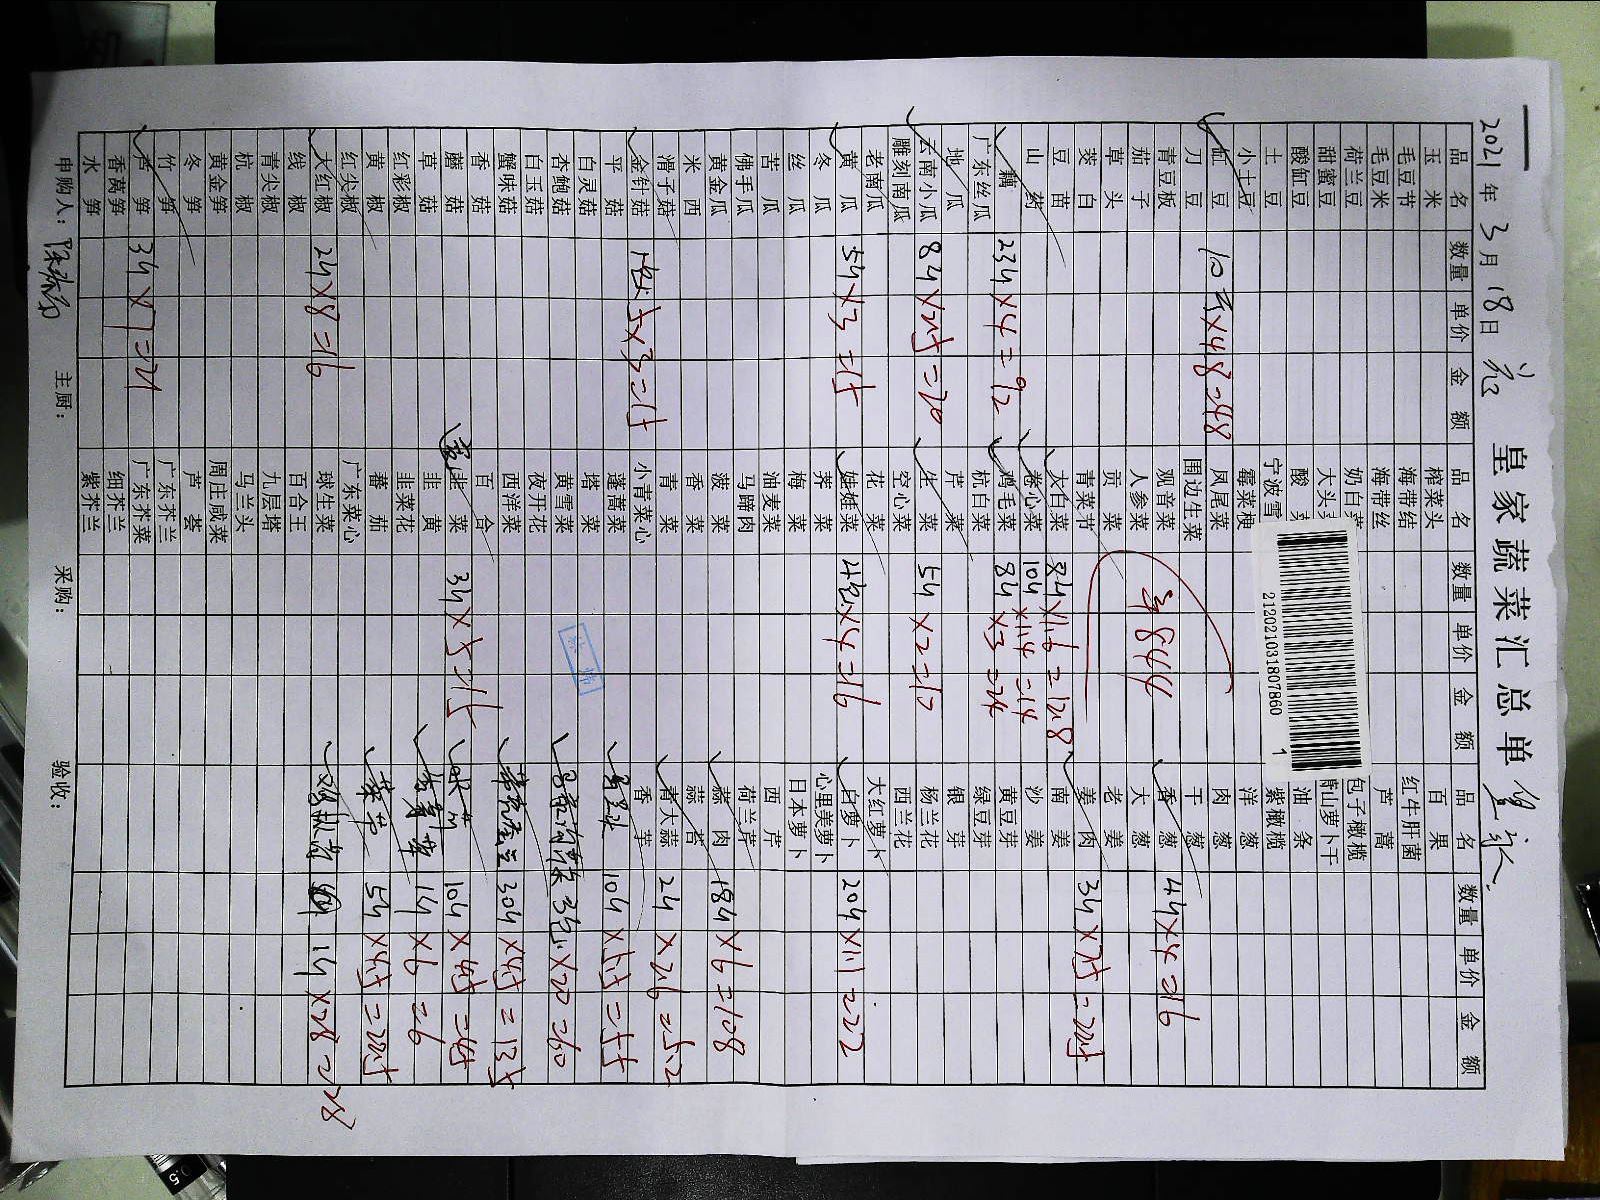 皇家蔬菜汇总单
2021年3月18日
品名 数量 单价 金额 品名 数量 单价 金额 品名 数量 单价 金额
玉米 榨菜头 百果
毛豆节 海带结 红牛肝菌
毛豆米 海带丝 芦蒿
荷兰豆 奶白菜 包子橄榄
甜蜜豆 大头 山萝卜干
酸缸豆 酸 油条
土豆 宁波雪 紫橄榄
小土豆 霉菜梗 洋葱
缸豆 ×4.8=48 凤尾菜 肉葱
刀豆 围边生菜 干葱
青豆板 观音菜 香葱 4斤×4=16
茄子 人参菜 大葱
草头 贡菜 老姜
葵白 青菜节 姜肉 3斤×7.5=22.5
豆苗 大白菜 8斤×1.6=12.8 南姜
山药 卷心菜 10斤×1.4=14 沙姜
藕 23斤×4=92 鸡毛菜 8斤×3=24 黄豆芽
广东丝瓜 杭白菜 绿豆芽
地瓜 芹菜 银芽
云南小瓜 8斤×2.5=20 生菜 5斤×2=10 杨兰花
雕刻南瓜 空心菜 西兰花
老南瓜 花菜 大红萝卜
黄瓜 5斤×3=15 娃娃菜 ×4=16 白萝卜 20斤×1.1=22
冬瓜 荠菜 心里美萝卜
丝瓜 梅菜 日本萝卜
苦瓜 油麦菜 西芹
佛手瓜 马蹄肉 荷兰芹
黄金瓜 菠菜 蒜肉 18斤×6=108
米西 香菜 蒜苔
滑子菇 青菜 青大蒜 2斤×2.6=5.2
金针菇 5×3=15 小青菜心 香芋
平菇 蓬蒿菜 10斤×5.5=55
白灵菇 塔菜
杏鲍菇 黄雪菜 3包×20=60
白玉菇 夜开花
蟹味菇 西洋菜 30斤×4.5=135
香菇 百合
蘑菇 韭菜 3斤×5=15 10斤×4.5=45
草菇 韭黄 1斤×6=6
红彩椒 韭菜花
黄椒 蕃茄 5斤×4.5=22.5
红尖椒 广东菜心
大红椒 2斤×8=16 球生菜 1斤×28=28
线椒 百合王
青尖椒 九层塔
杭椒 马兰头
黄金笋 周庄咸菜
冬笋 芦荟
竹笋 广东芥兰
芦笋 3斤×7=21 广东芥菜
香莴笋 细芥兰
水笋 紫芥兰
¥844
2120210318078601 1
申购人： 主厨： 采购： 验收：